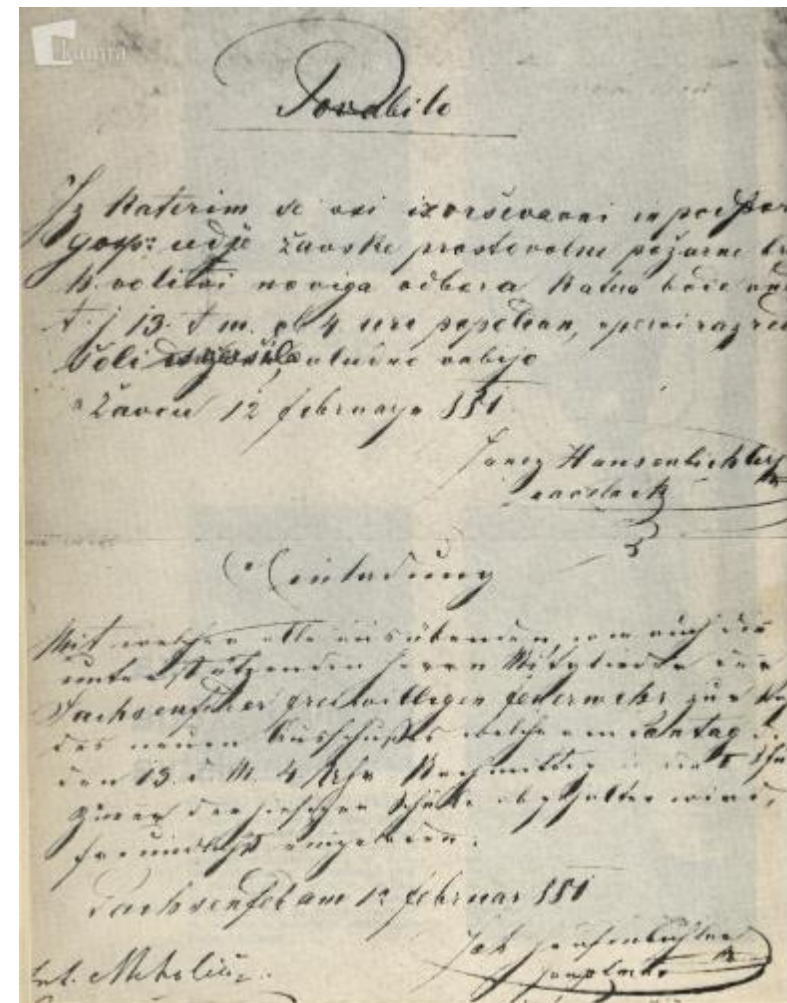 kamra
Povabilo
Z katerim se vsi izvrševavni in podpor
gosp: udje žavske prostovolne požarne br
k volitvi noviga odbora katira bode
t. j 13. t m. ob 4 uri popoldan, v pervi razred
šoli vludno vabijo
Žavcu 12 februarja 881
Janez Hausenbichler
načelnik
Einladung
Mit welcher alle ausübenden, wie auch die
unterstützenden Herrn Mitglieder der
Sachsenfelder freiwilligen Feuerwehr zur
des neuen Ausschußes welche am Sontag
den 13. d. M. 4 Uhr Nachmittag in der I
zimer der hiesigen Schule abgehalten wird,
freundlichst eingeladen.
Sachsenfeld am 12 februar 881
Joh Hausenbichler
Hauptmann